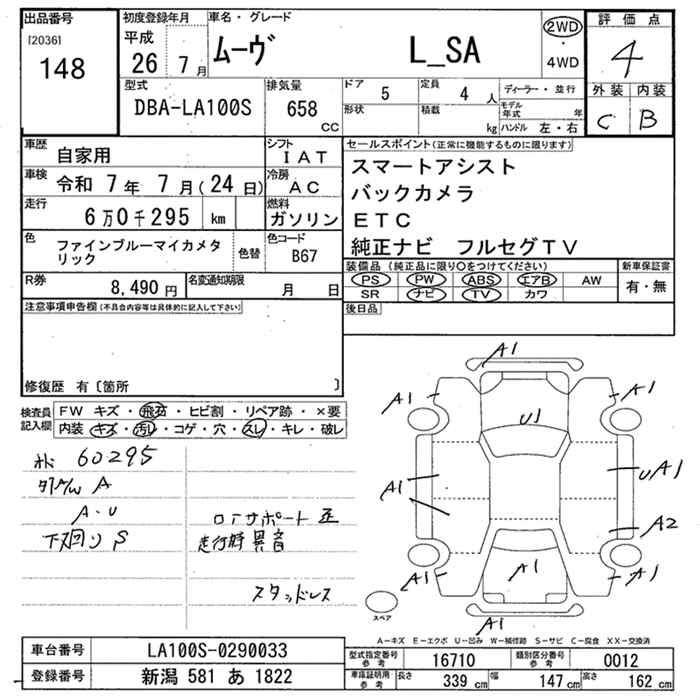 出品番号 初度登録年月 車名・グレード 評価点
[2036]
148
平成
26 7月
ムーヴ L_SA
2WD
・
4WD
4
型式 排気量 ドア 5 定員 4 人 ディーラー・並行 外装 内装
DBA-LA100S 658 cc
形状 積載 kg モデル年式 年
ハンドル 左・右
C B
車歴 自家用 シフト IAT
車検 令和 7年 7月(24日) 冷房 AC
走行 6万0千295 km 燃料 ガソリン
色 ファインブルーマイカメタリック 色替 色コード B67
R券 8,490円 名変通知期限 月 日
セールスポイント(正常に機能するものに限ります)
スマートアシスト
バックカメラ
ETC
純正ナビ フルセグTV
装備品(純正品に限り○をつけてください) 新車保証書
PS PW ABS エアB AW
SR ナビ TV カワ
有・無
後日品
注意事項申告欄(不具合内容等は具体的に記入して下さい)
修復歴 有〔箇所 〕
検査員記入欄
FW キズ・飛石・ヒビ割・リペア跡・×要
内装 キズ・汚れ・コゲ・穴・スレ・キレ・破レ
60295
A
A・U
下回り S
ロアサポート 歪
走行時 異音
スタッドレス
A1
A1 A1
U1
A1 UA1
A2
A1 A1 A1
A1
スペア
A－キズ E－エクボ U－凹み W－補修跡 S－サビ C－腐食 XX－交換済
車台番号 LA100S-0290033
登録番号 新潟 581 あ 1822
型式指定番号 参考 16710 類別区分番号 参考 0012
車庫証明用 参考 長さ 339 cm 幅 147 cm 高さ 162 cm